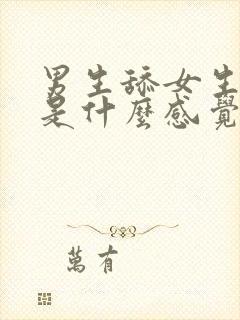 男生舔女生
是什麼感覺
萬有